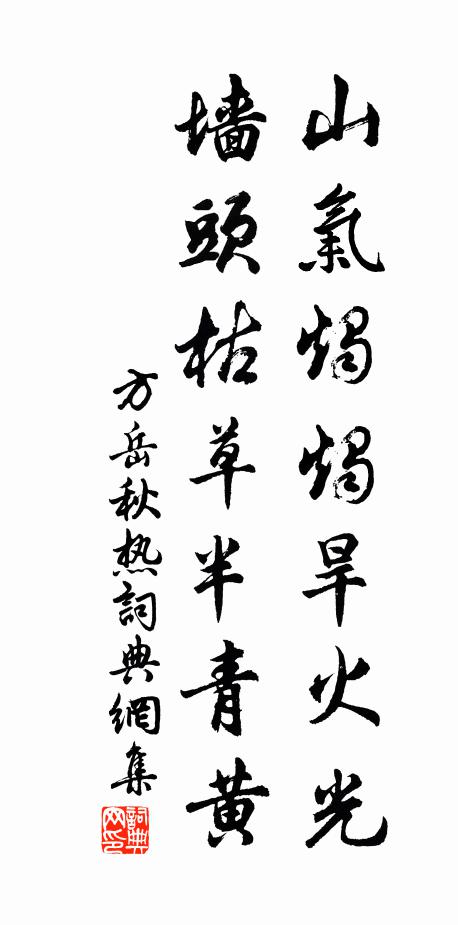 山氣燭燭旱火光
墻頭枯草半青黃
方岳秋热詞典網集
詞典网印